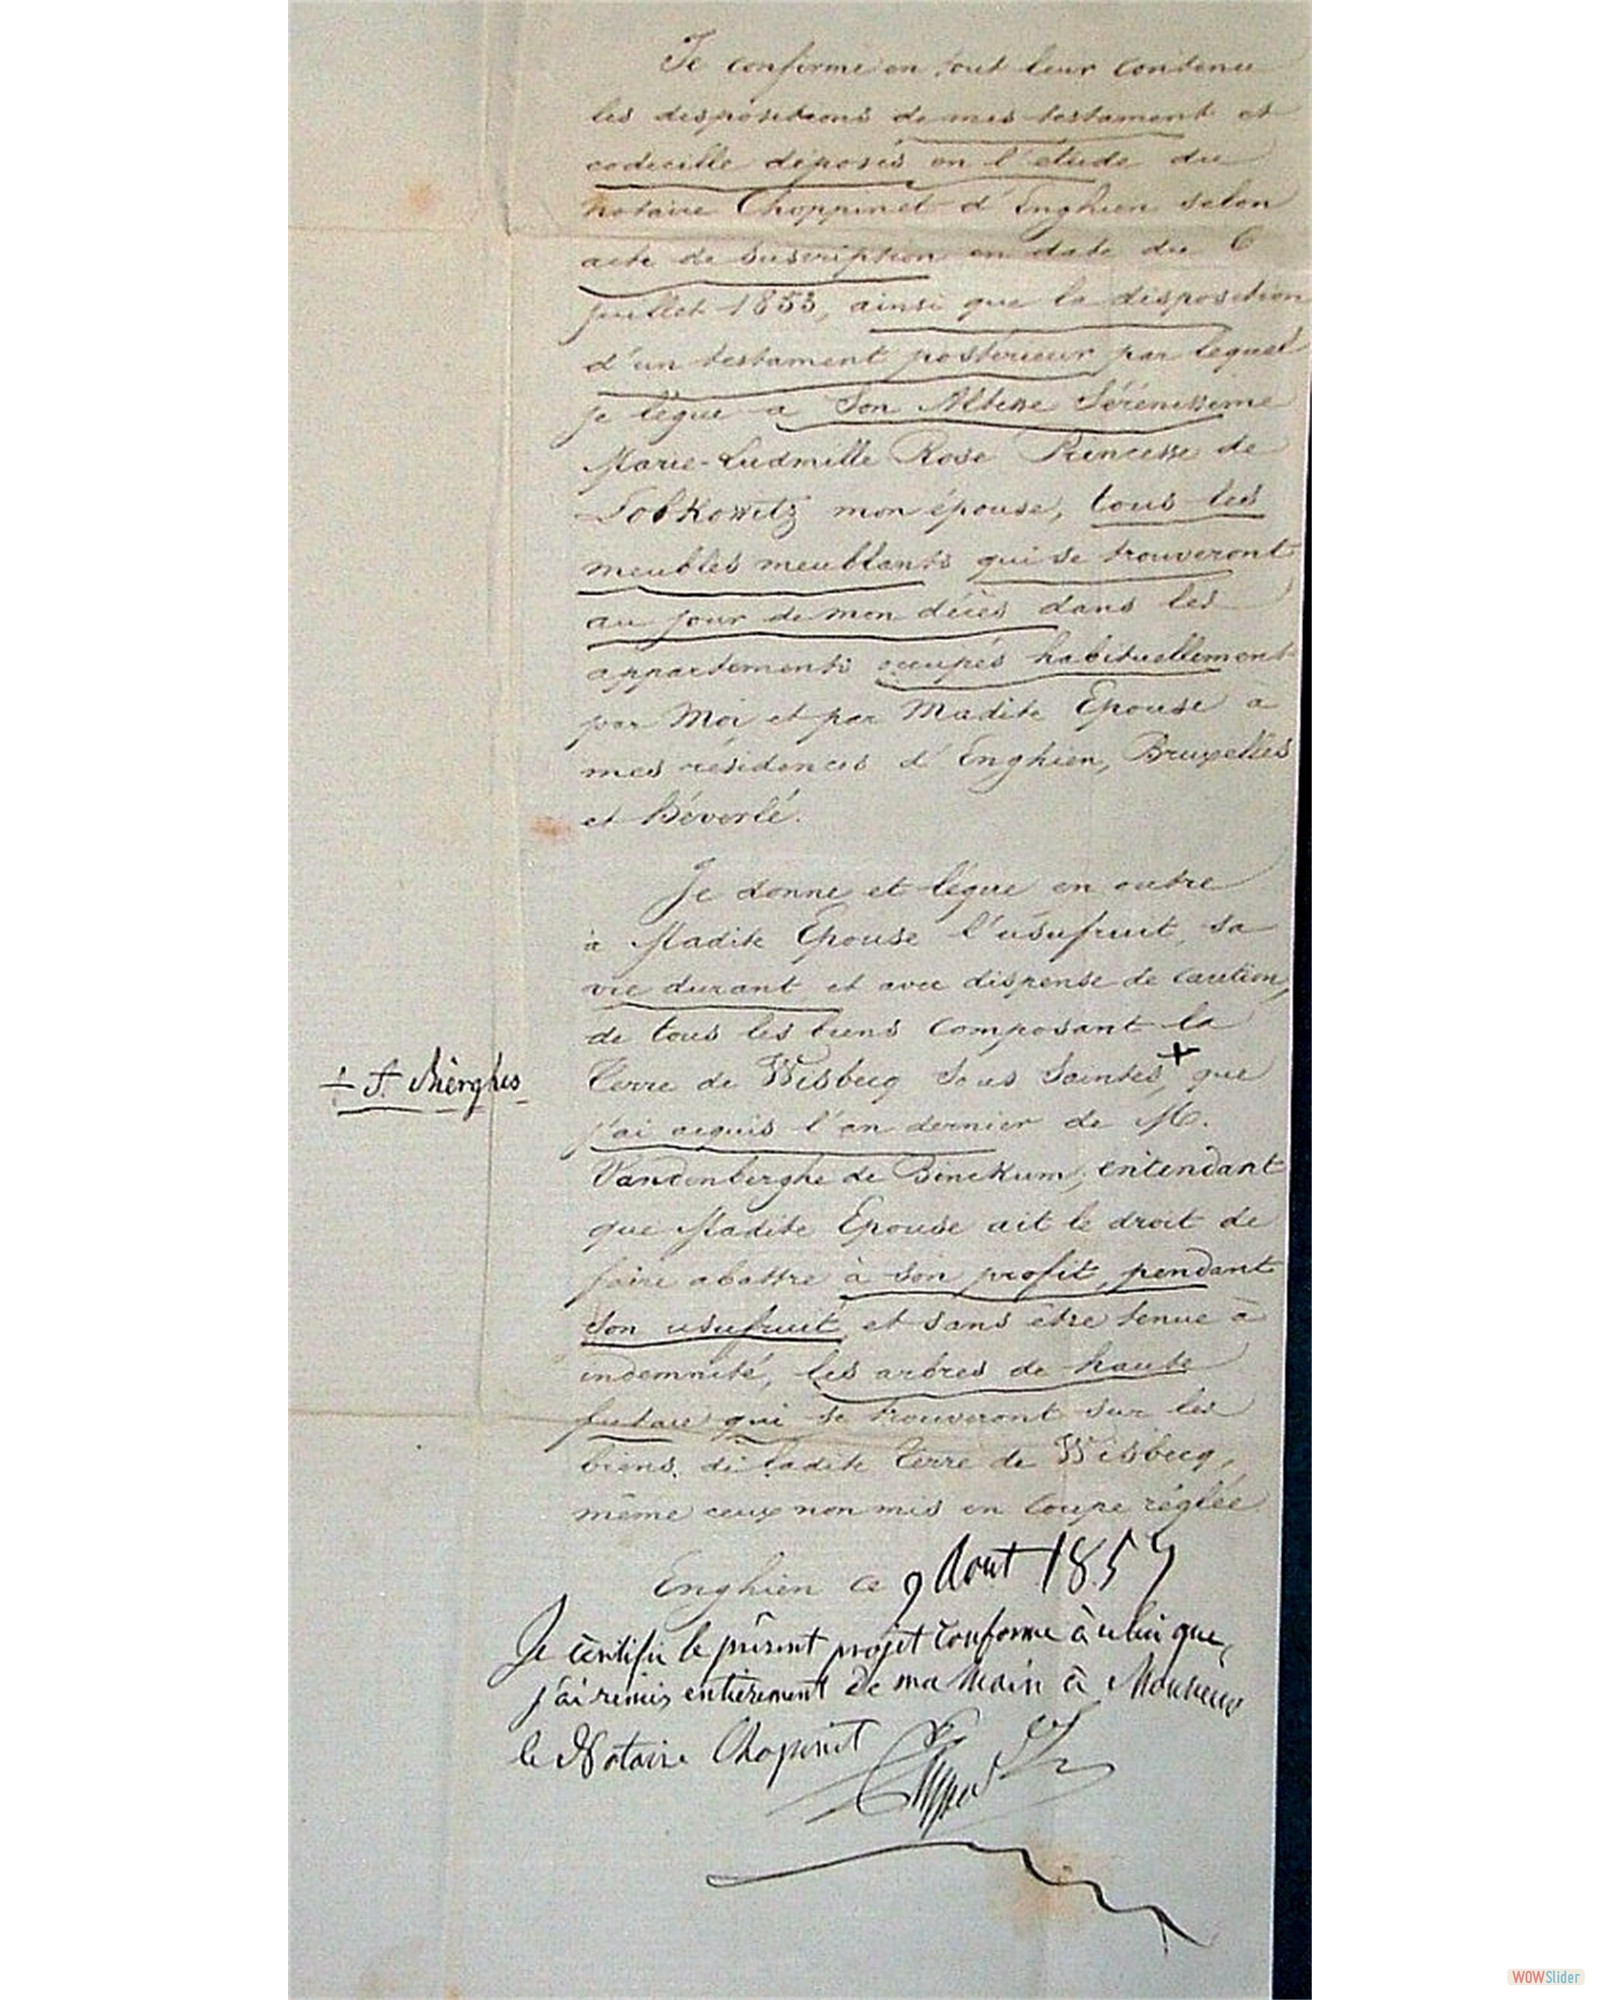 Je confirme en tout leur contenu
les dispositions de mes testament et
codicille déposés en l'étude du
Notaire Choppinet d'Enghien selon
acte de suscription en date du 6
juillet 1853, ainsi que la disposition
d'un testament postérieur par lequel
je lègue à Son Altesse Sérénissime
Marie-Ludmille Rose Princesse de
Lobkowitz mon épouse, tous les
meubles meublants qui se trouveront
au jour de mon décès dans les
appartements occupés habituellement
par Moi et par Madite Epouse à
mes résidences d'Enghien, Bruxelles
et Héverlé.
Je donne et lègue en outre
à Madite Epouse l'usufruit, sa
vie durant, et avec dispense de caution,
de tous les biens composant la
+ St Bierghes
Terre de Wisbecq sous Saintes + que
j'ai acquis l'an dernier de M.
Vandenberghe de Binckum, entendant
que Madite Epouse ait le droit de
faire abattre à son profit, pendant
son usufruit, et sans être tenue à
indemnité, les arbres de haute
futaie qui se trouveront sur les
biens de ladite Terre de Wisbecq,
même ceux non mis en coupe réglée
Enghien ce 9 Aout 1857
Je certifie le présent projet conforme à celui que
j'ai remis entièrement de ma Main à Monsieur
le Notaire Chopinet
WOWSlider